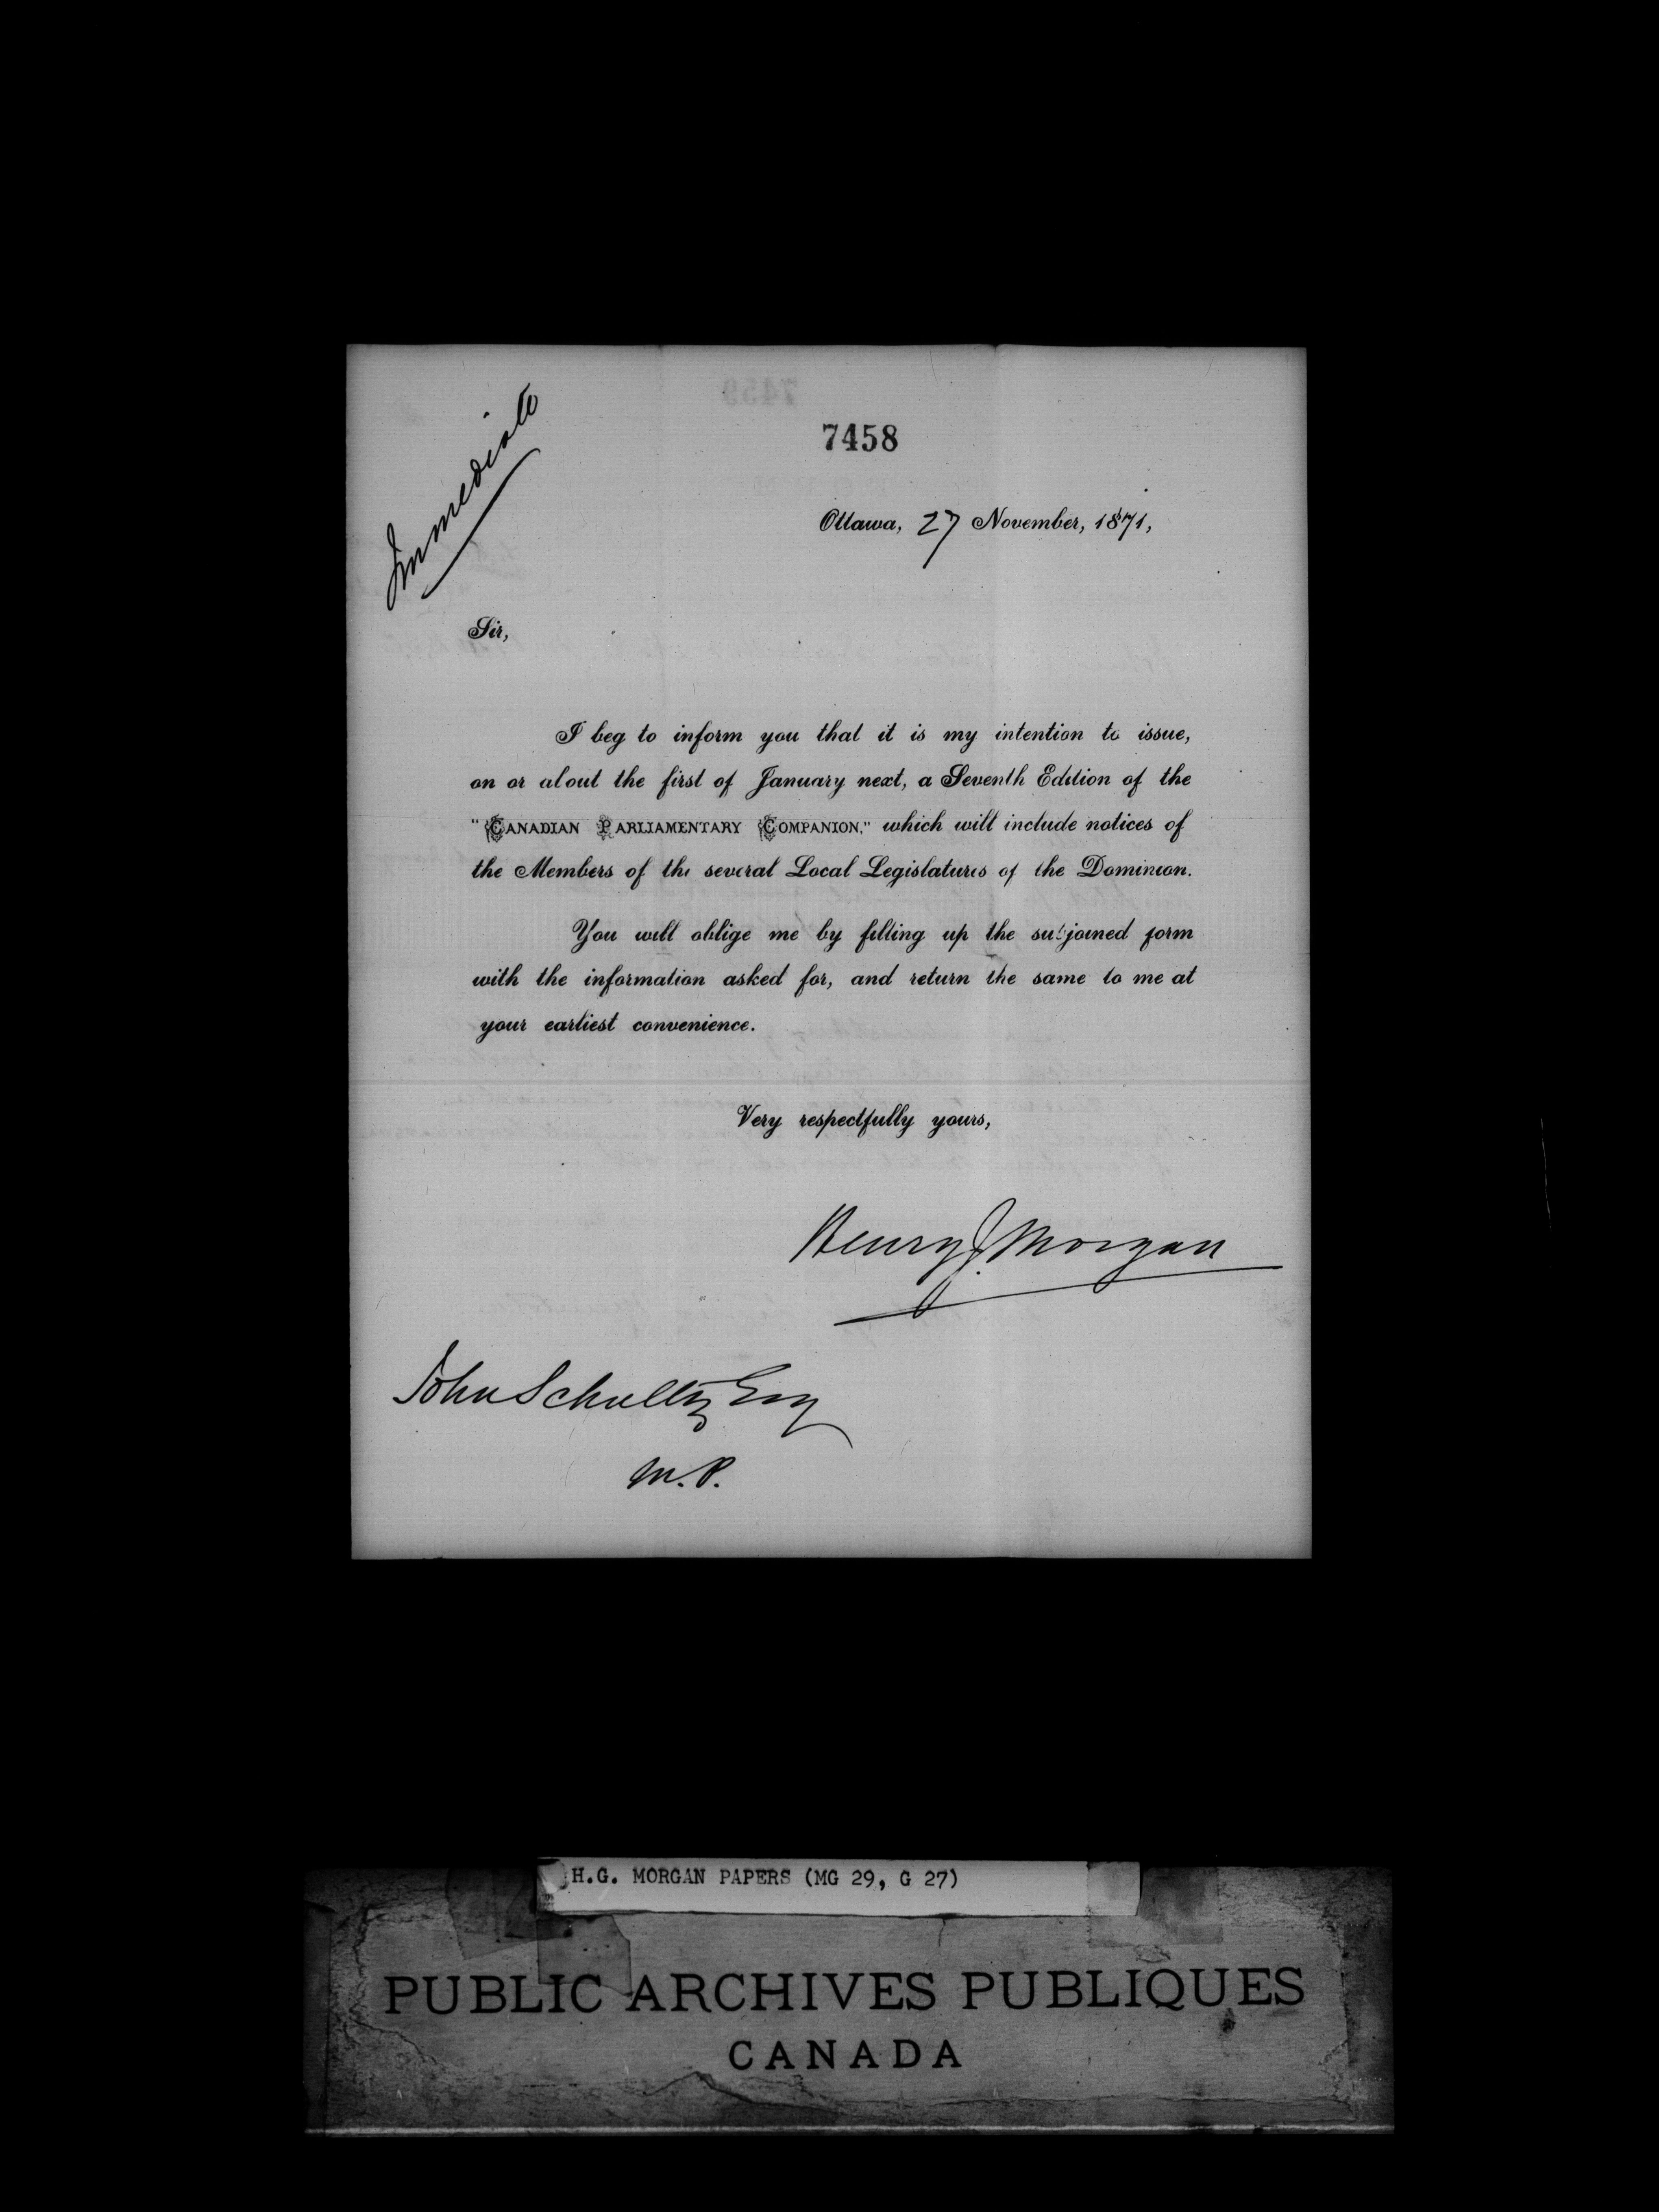 Immediate
7458
Ottawa, 27 November, 1871,
Sir,
I beg to inform you that it is my intention to issue,
on or about the first of January next, a Seventh Edition of the
"CANADIAN PARLIAMENTARY COMPANION," which will include notices of
the Members of the several Local Legislatures of the Dominion.
You will oblige me by filling up the subjoined form
with the information asked for, and return the same to me at
your earliest convenience.
Very respectfully yours,
Henry J. Morgan
John Schultz Esq
M.P.
H.G. MORGAN PAPERS (MG 29, G 27)
PUBLIC ARCHIVES PUBLIQUES
CANADA